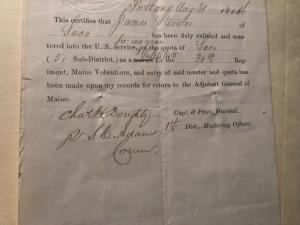 Portland Aug 31 1864
This certifies that James
of Saco, has been duly enlisted and mus-
for one year
tered into the U. S. service, on the quota of Saco
(51 Sub-District,) as a Substitute in the 30th Reg-
iment, Maine Volunteers, and entry of said muster and quota has
been made upon my records for return to the Adjutant General of
Maine.
Chas H Doughty
Capt. & Prov. Marshal,
pr S. C. Adams
1st Dist., Mustering Officer.